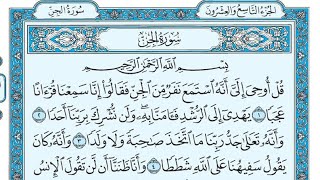 سُورَةُ الْجِنِّ
الْجُزْءُ التَّاسِعُ وَالْعِشْرُونَ
سُورَةُ الْجِنِّ
بِسْمِ اللَّهِ الرَّحْمَٰنِ الرَّحِيمِ
قُلْ أُوحِيَ إِلَيَّ أَنَّهُ اسْتَمَعَ نَفَرٌ مِّنَ الْجِنِّ فَقَالُوا إِنَّا سَمِعْنَا قُرْءَانًا
عَجَبًا ١ يَهْدِي إِلَى الرُّشْدِ فَـَٔامَنَّا بِهِ وَلَن نُّشْرِكَ بِرَبِّنَا أَحَدًا ٢
وَأَنَّهُ تَعَالَىٰ جَدُّ رَبِّنَا مَا اتَّخَذَ صَاحِبَةً وَلَا وَلَدًا ٣ وَأَنَّهُ كَانَ
يَقُولُ سَفِيهُنَا عَلَى اللَّهِ شَطَطًا ٤ وَأَنَّا ظَنَنَّا أَن لَّن تَقُولَ الْإِنسُ